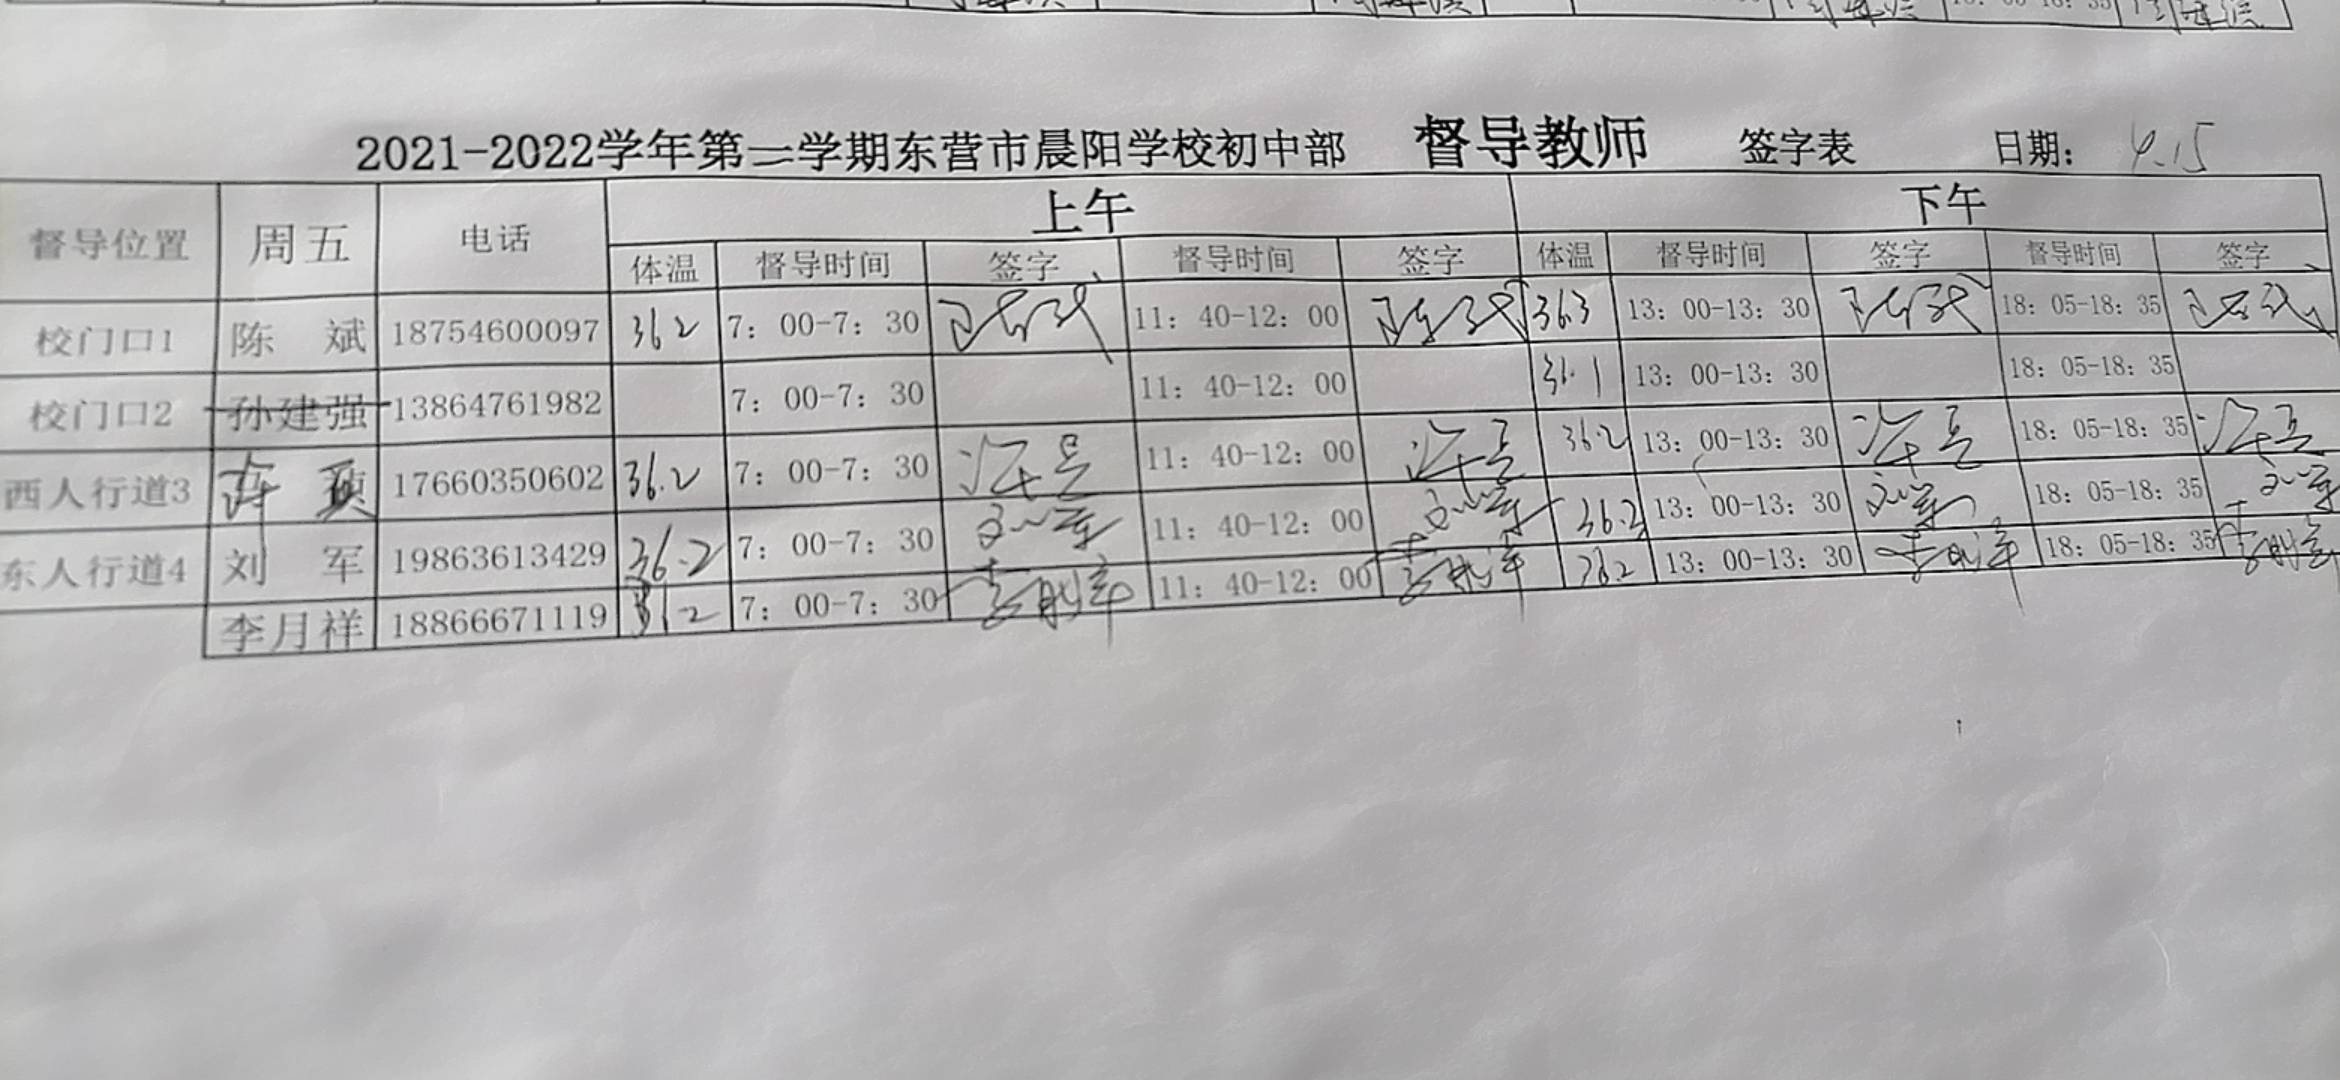 2021-2022学年第二学期东营市晨阳学校初中部 督导教师 签字表 日期: 4.15
督导位置 周五 电话 上午 下午
体温 督导时间 签字 督导时间 签字 体温 督导时间 签字 督导时间 签字
校门口1 陈 斌 18754600097 36.2 7: 00-7: 30 11: 40-12: 00 36.3 13: 00-13: 30 18: 05-18: 35
校门口2 孙建强 13864761982 7: 00-7: 30 11: 40-12: 00 36.1 13: 00-13: 30 18: 05-18: 35
西人行道3 17660350602 36.2 7: 00-7: 30 11: 40-12: 00 36.2 13: 00-13: 30 18: 05-18: 35
东人行道4 刘 军 19863613429 36.2 7: 00-7: 30 刘军 11: 40-12: 00 刘军 36.2 13: 00-13: 30 刘军 18: 05-18: 35 刘军
李月祥 18866671119 36.2 7: 00-7: 30 李月祥 11: 40-12: 00 李月祥 36.2 13: 00-13: 30 李月祥 18: 05-18: 35 李月祥